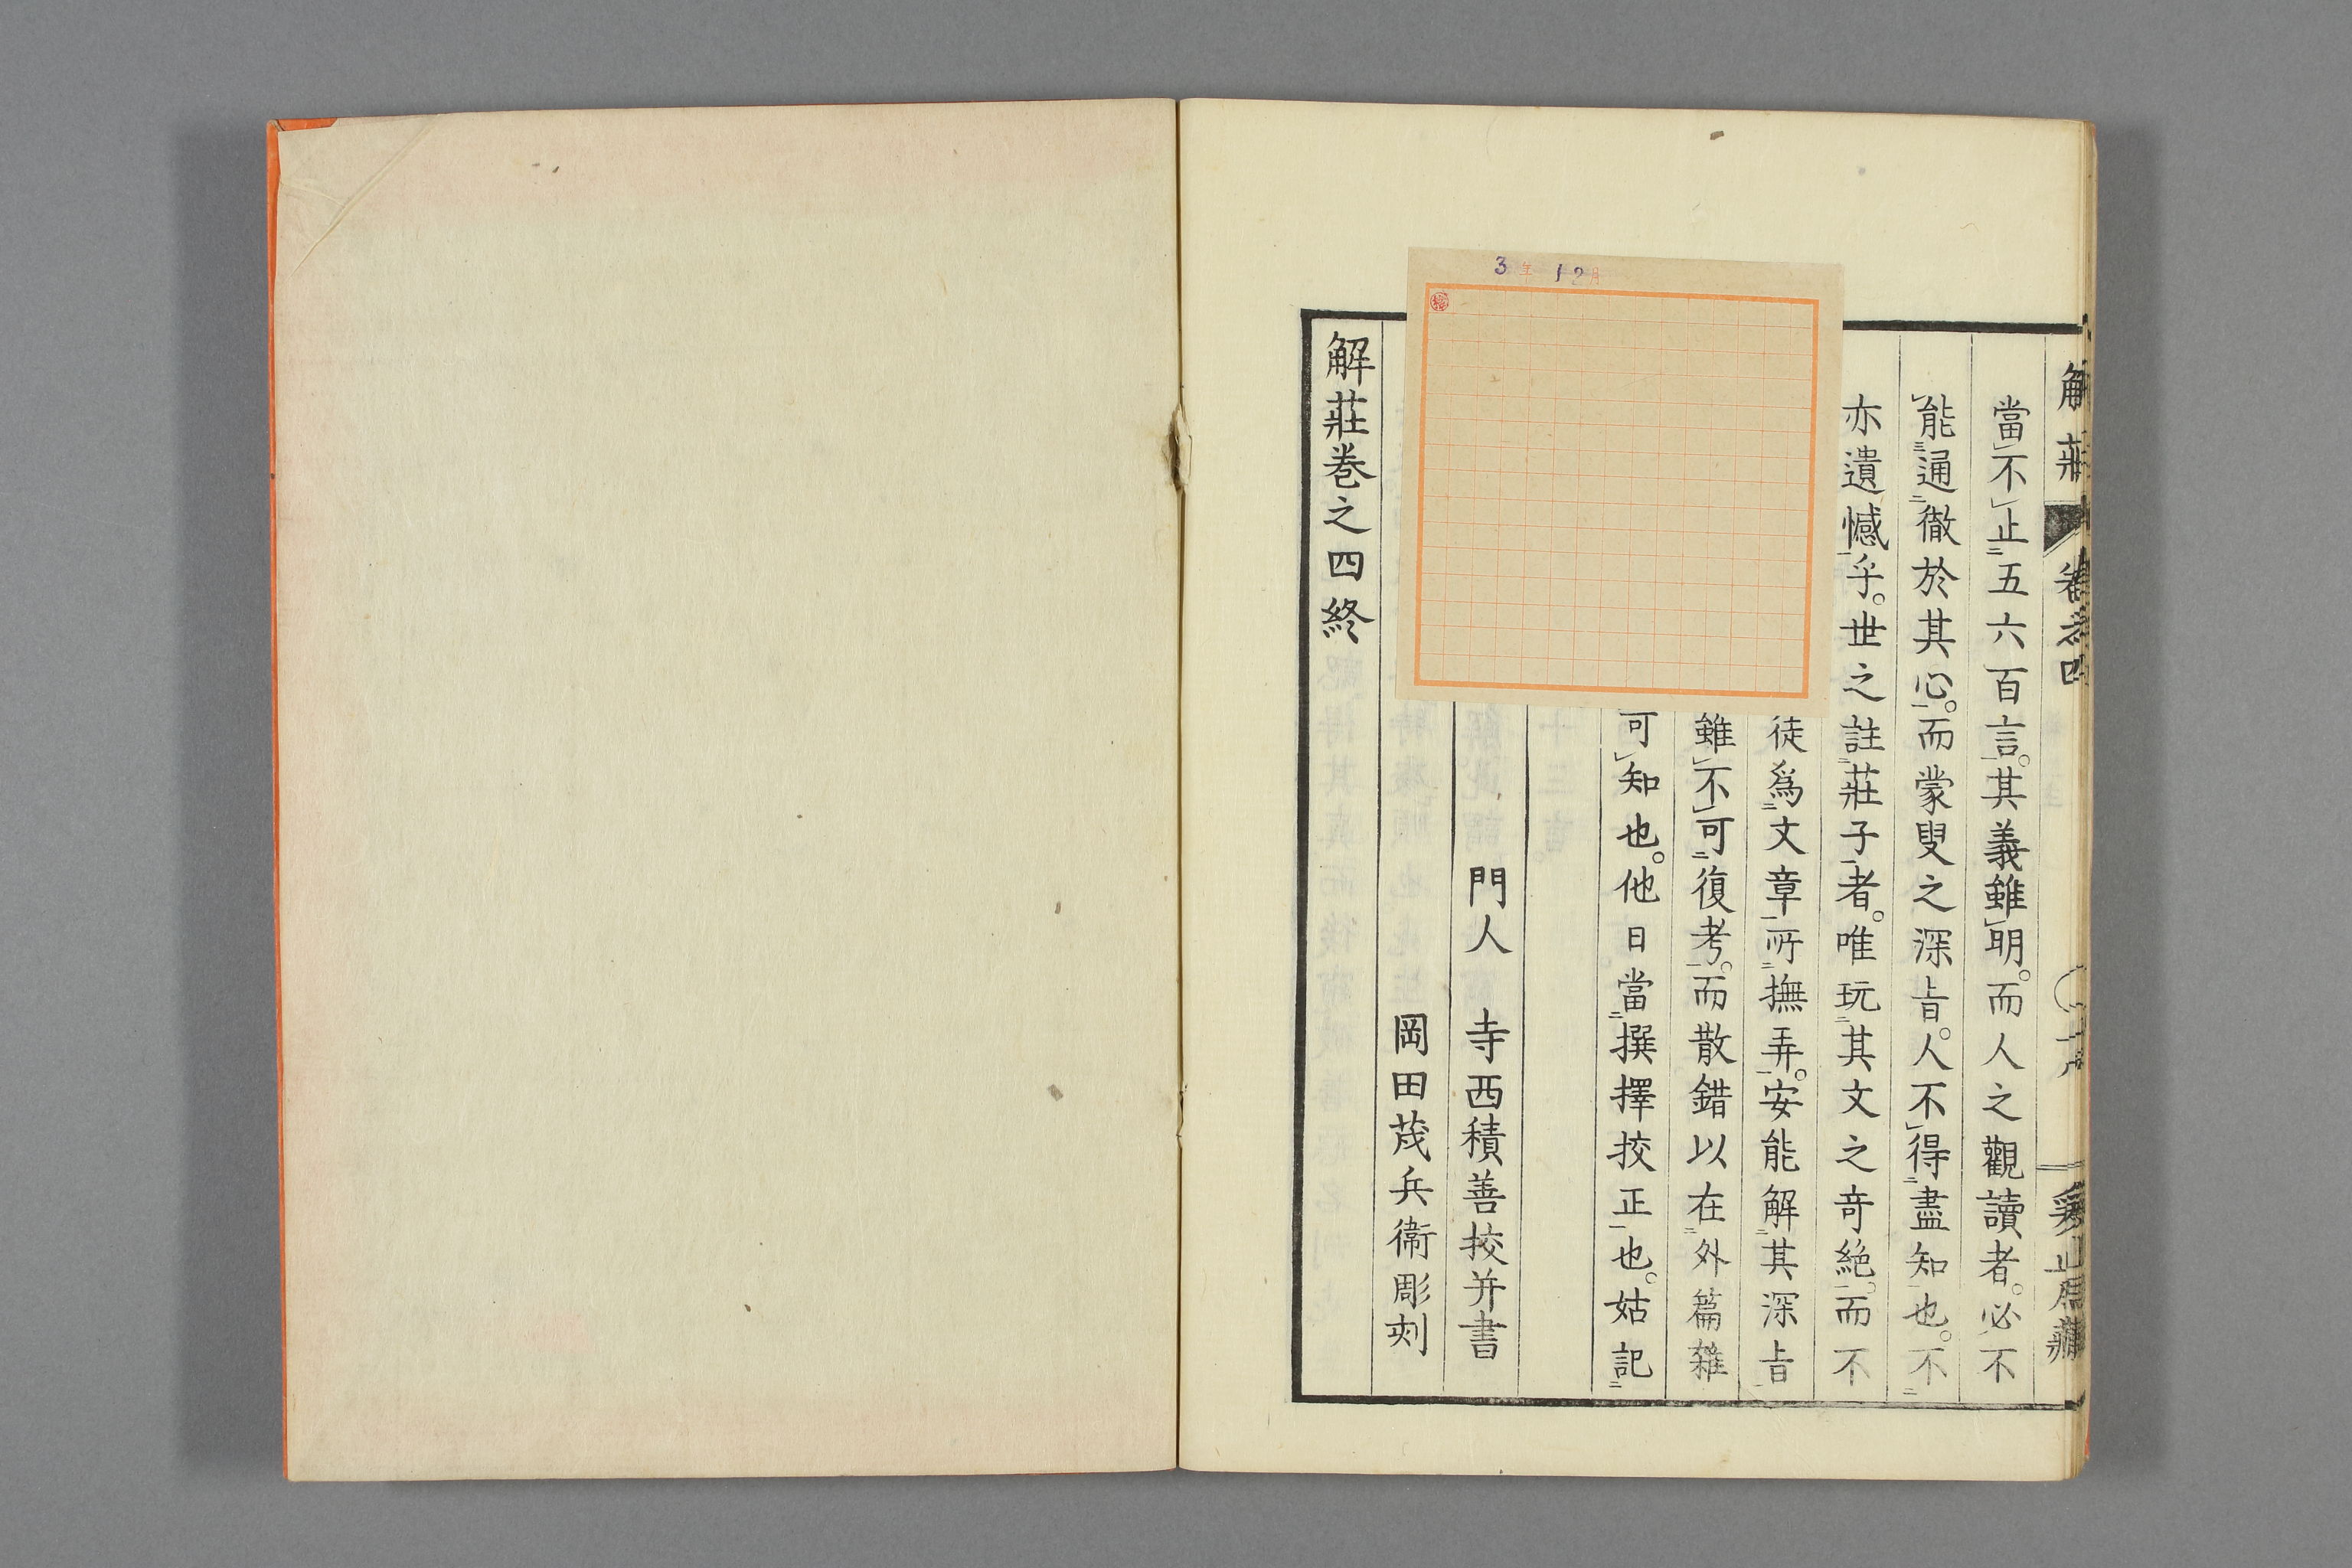 解莊
當不止五六百言。其義雖明。而人之觀讀者。必不
能通徹於其心。而蒙叟之深旨。人不得盡知也。不
亦遺憾乎。世之註莊子者。唯玩其文之奇絕。而不
徒爲文章所撫弄。安能解其深旨
雖不可復考。而散錯以在外篇雜
可知也。他日當撰擇挍正也。姑記
門人 寺西積善挍并書
岡田茂兵衞彫刻
解莊卷之四終
3年 12月